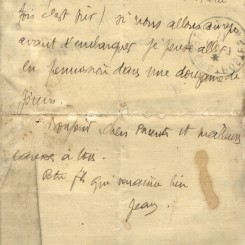 fois c'est sûr) si nous allons au repos
avant d'embarquer je pense aller
en permission dans une douzaine de
jours.
Bonjour chers Parents et meilleures
caresses à tous.
Votre fils qui vous aime bien
Jean.